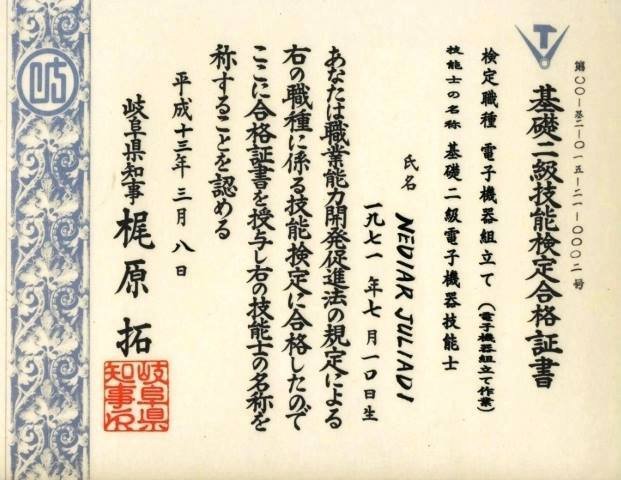 第〇〇－基二－〇一五－二一－〇〇〇二号
基礎二級技能検定合格証書
検定職種 電子機器組立て（電子機器組立て作業）
技能士の名称 基礎二級電子機器技能士
氏名 NEDIAR JULIADI
一九七一年七月一〇日生
あなたは職業能力開発促進法の規定による
右の職種に係る技能検定に合格したので
ここに合格証書を授与し右の技能士の名称を
称することを認める
平成十三年三月八日
岐阜県知事 梶原拓
岐阜県
知事之印
岐